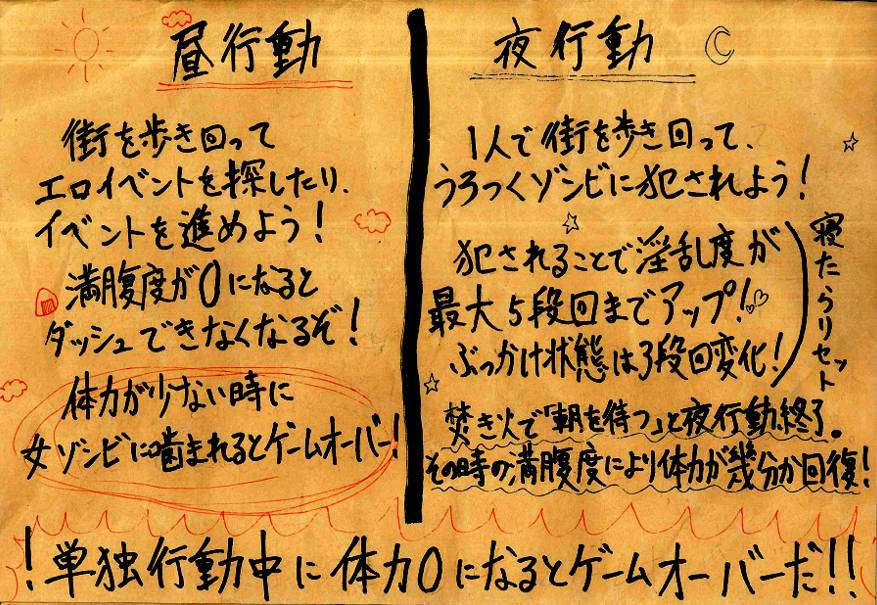 昼行動
街を歩き回って
エロイベントを探したり、
イベントを進めよう！
満腹度が0になると
ダッシュできなくなるぞ！
体力が少ない時に
女ゾンビに噛まれるとゲームオーバー！
夜行動
1人で街を歩き回って、
うろつくゾンビに犯されよう！
犯されることで淫乱度が
最大5段回までアップ！
ぶっかけ状態は3段回変化！
寝たらリセット
焚き火で「朝を待つ」と夜行動終了。
その時の満腹度により体力が幾分か回復！
！単独行動中に体力0になるとゲームオーバーだ！！